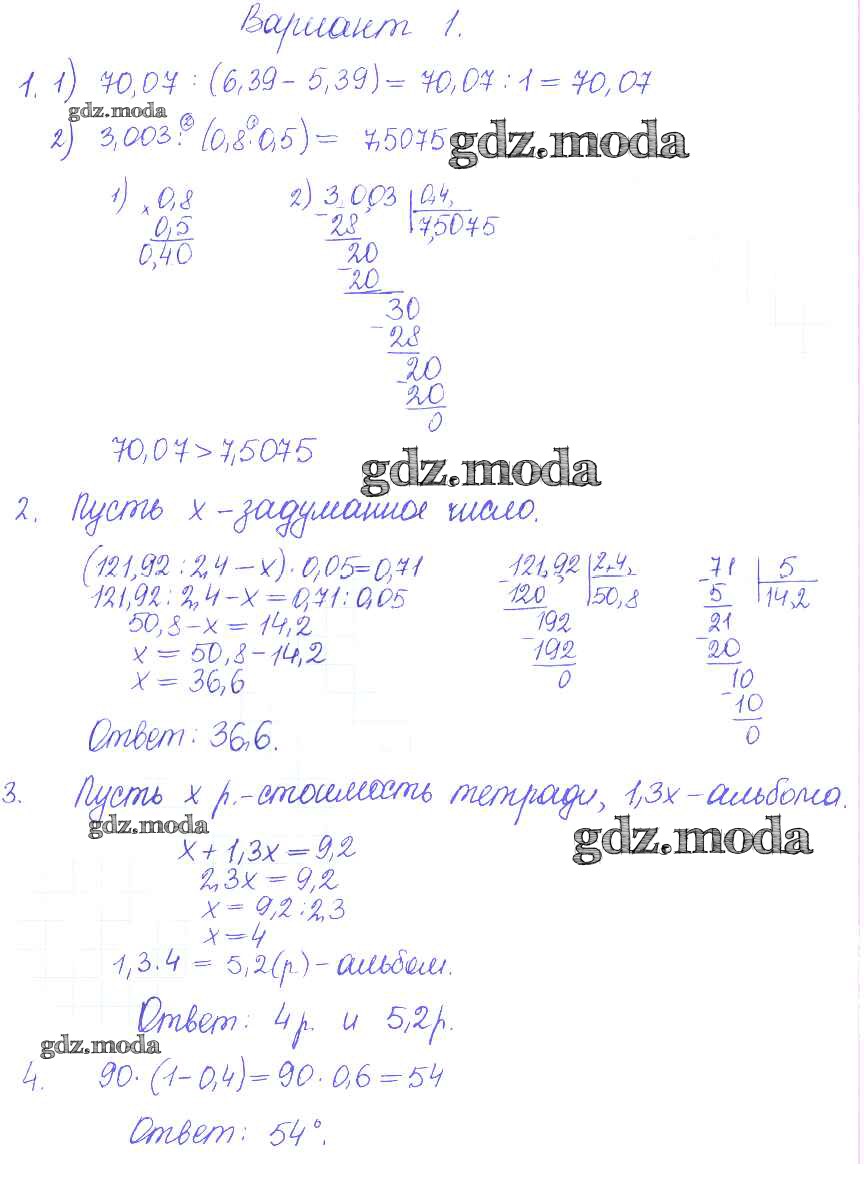 Вариант 1.
1. 1) 70,07 : (6,39 - 5,39) = 70,07 : 1 = 70,07
gdz.moda
2) 3,003 : (0,8 · 0,5) = 7,5075
gdz.moda
1) × 0,8
0,5
0,40
2) 3,003 | 0,4,
- 28 | 7,5075
20
- 20
30
- 28
20
- 20
0
70,07 > 7,5075
gdz.moda
2. Пусть x - задуманное число.
(121,92 : 2,4 - x) · 0,05 = 0,71
121,92 : 2,4 - x = 0,71 : 0,05
50,8 - x = 14,2
x = 50,8 - 14,2
x = 36,6
121,92 | 2,4,
- 120 | 50,8
192
- 192
0
- 71 | 5
5 | 14,2
21
- 20
10
- 10
0
Ответ: 36,6.
3. Пусть x р. - стоимость тетради, 1,3x - альбома.
gdz.moda
gdz.moda
x + 1,3x = 9,2
2,3x = 9,2
x = 9,2 : 2,3
x = 4
1,3 · 4 = 5,2 (р) - альбом.
Ответ: 4 р. и 5,2 р.
gdz.moda
4. 90 · (1 - 0,4) = 90 · 0,6 = 54
Ответ: 54°.